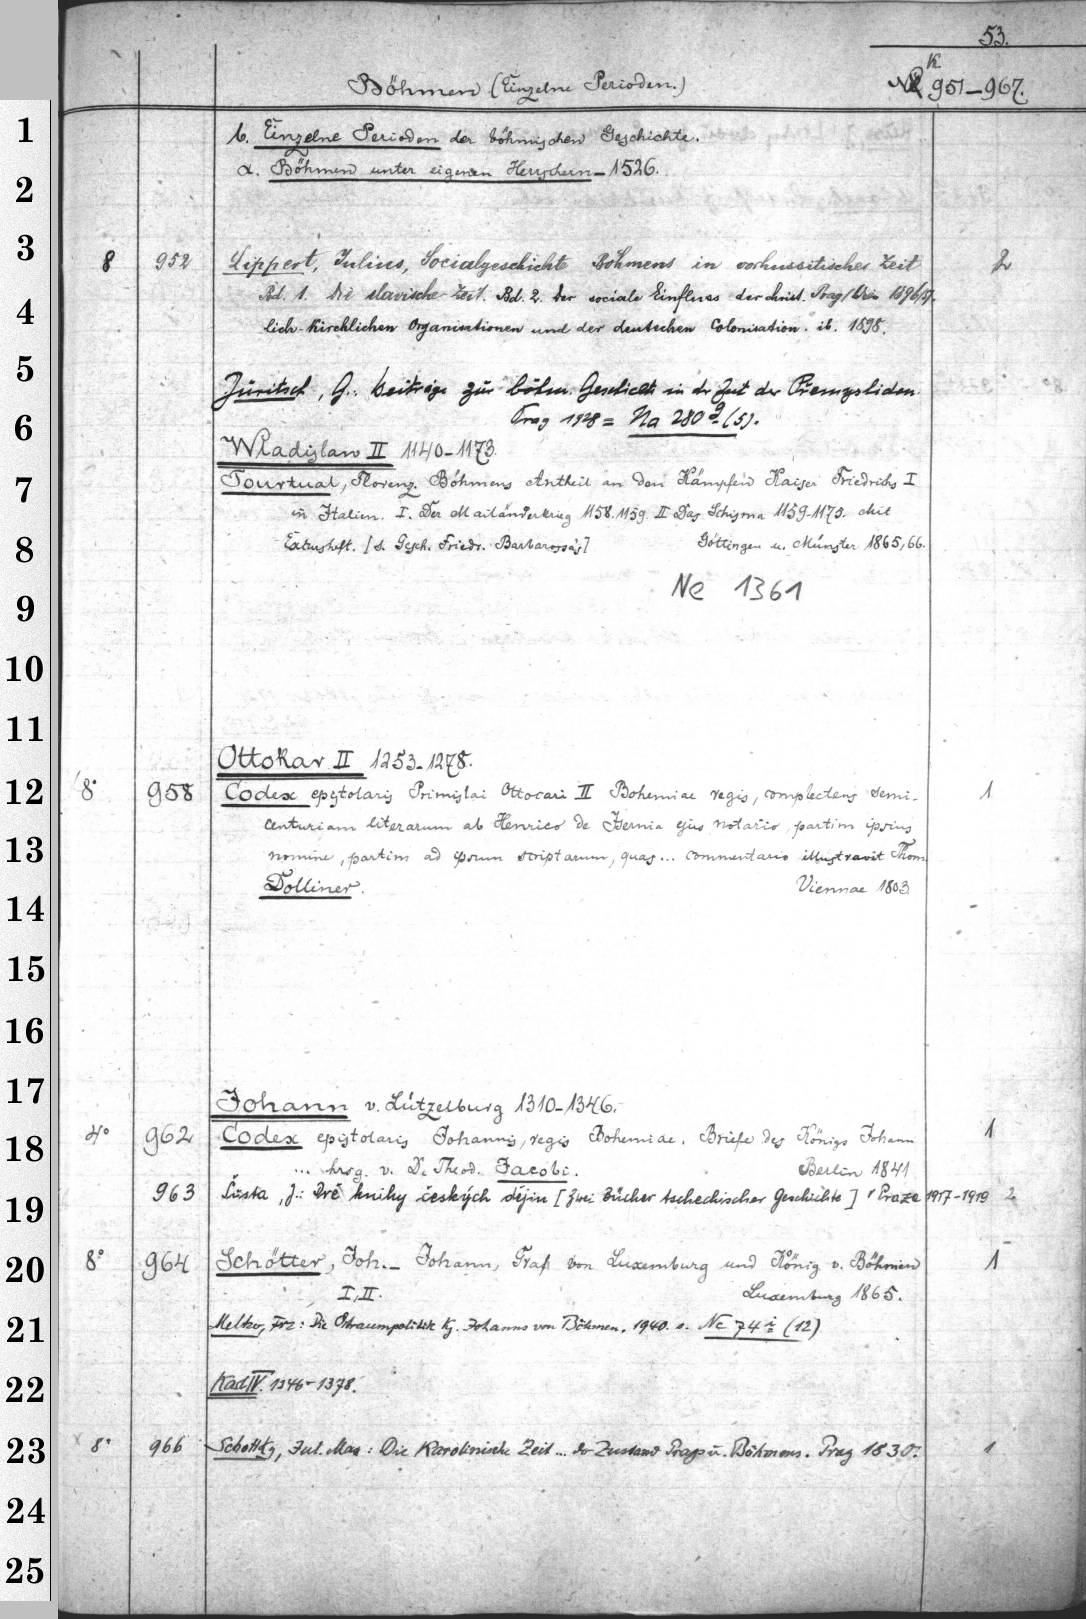 53.
Böhmen (Einzelne Perioden.) K 951–967.
1
b. Einzelne Perioden der böhmischen Geschichte.
2
α. Böhmen unter eigenen Herrschern – 1526.
3
8 952 Lippert, Julius, Socialgeschichte Böhmens in vorhussitischer Zeit 2
4
Bd. 1. Die slavische Zeit. Bd. 2. Der sociale Einfluss der christ- Prag/Wien 1896/97.
lich-kirchlichen Organisationen und der deutschen Colonisation. ib. 1898.
5
Juritsch, G.: Beiträge zur böhm. Geschichte in der Zeit der Přemysliden.
6
Prag 1928 = Na 280 g (5).
Wladislaw II 1140–1173.
7
Tourtual, Florenz. Böhmens Antheil an den Kämpfen Kaiser Friedrichs I
in Italien. I. Der Mailänderkrieg 1158.1159. II Das Schisma 1159–1173. Mit
8
Extrusheft. [s. Gesch. Friedr. Barbarossa's] Göttingen u. Münster 1865,66.
9
Ne 1361
10
11
Ottokar II 1253–1278.
12
8° 958 Codex epistolaris Primislai Ottocari II Bohemiae regis, complectens semi- 1
centuriam literarum ab Henrico de Isernia ejus notario, partim ipsius
13
nomine, partim ad ipsum scriptarum, quas... commentario illustravit Thom.
14
Dolliner. Viennae 1803
15
16
17
Johann v. Lützelburg 1310–1346.
18
4° 962 Codex epistolaris Johannis, regis Bohemiae. Briefe des Königs Johann 1
... hrsg. v. D. Theod. Jacobi. Berlin 1841
19
963 Šusta, J.: Dvě knihy českých dějin [Zwei Bücher tschechischer Geschichte] v Praze 1917–1919 2
20
8° 964 Schötter, Joh. – Johann, Graf von Luxemburg und König v. Böhmen 1
I, II. Luxemburg 1865.
21
Meltzer, Frz: Die Ostraumpolitik Kg. Johanns von Böhmen. 1940. s. Nc 74 i (12)
22
Karl IV. 1346–1378.
23
8° 966 Schottky, Jul. Max: Die Karolinische Zeit ... der Zustand Prags u. Böhmens. Prag 1830. 1
24
25